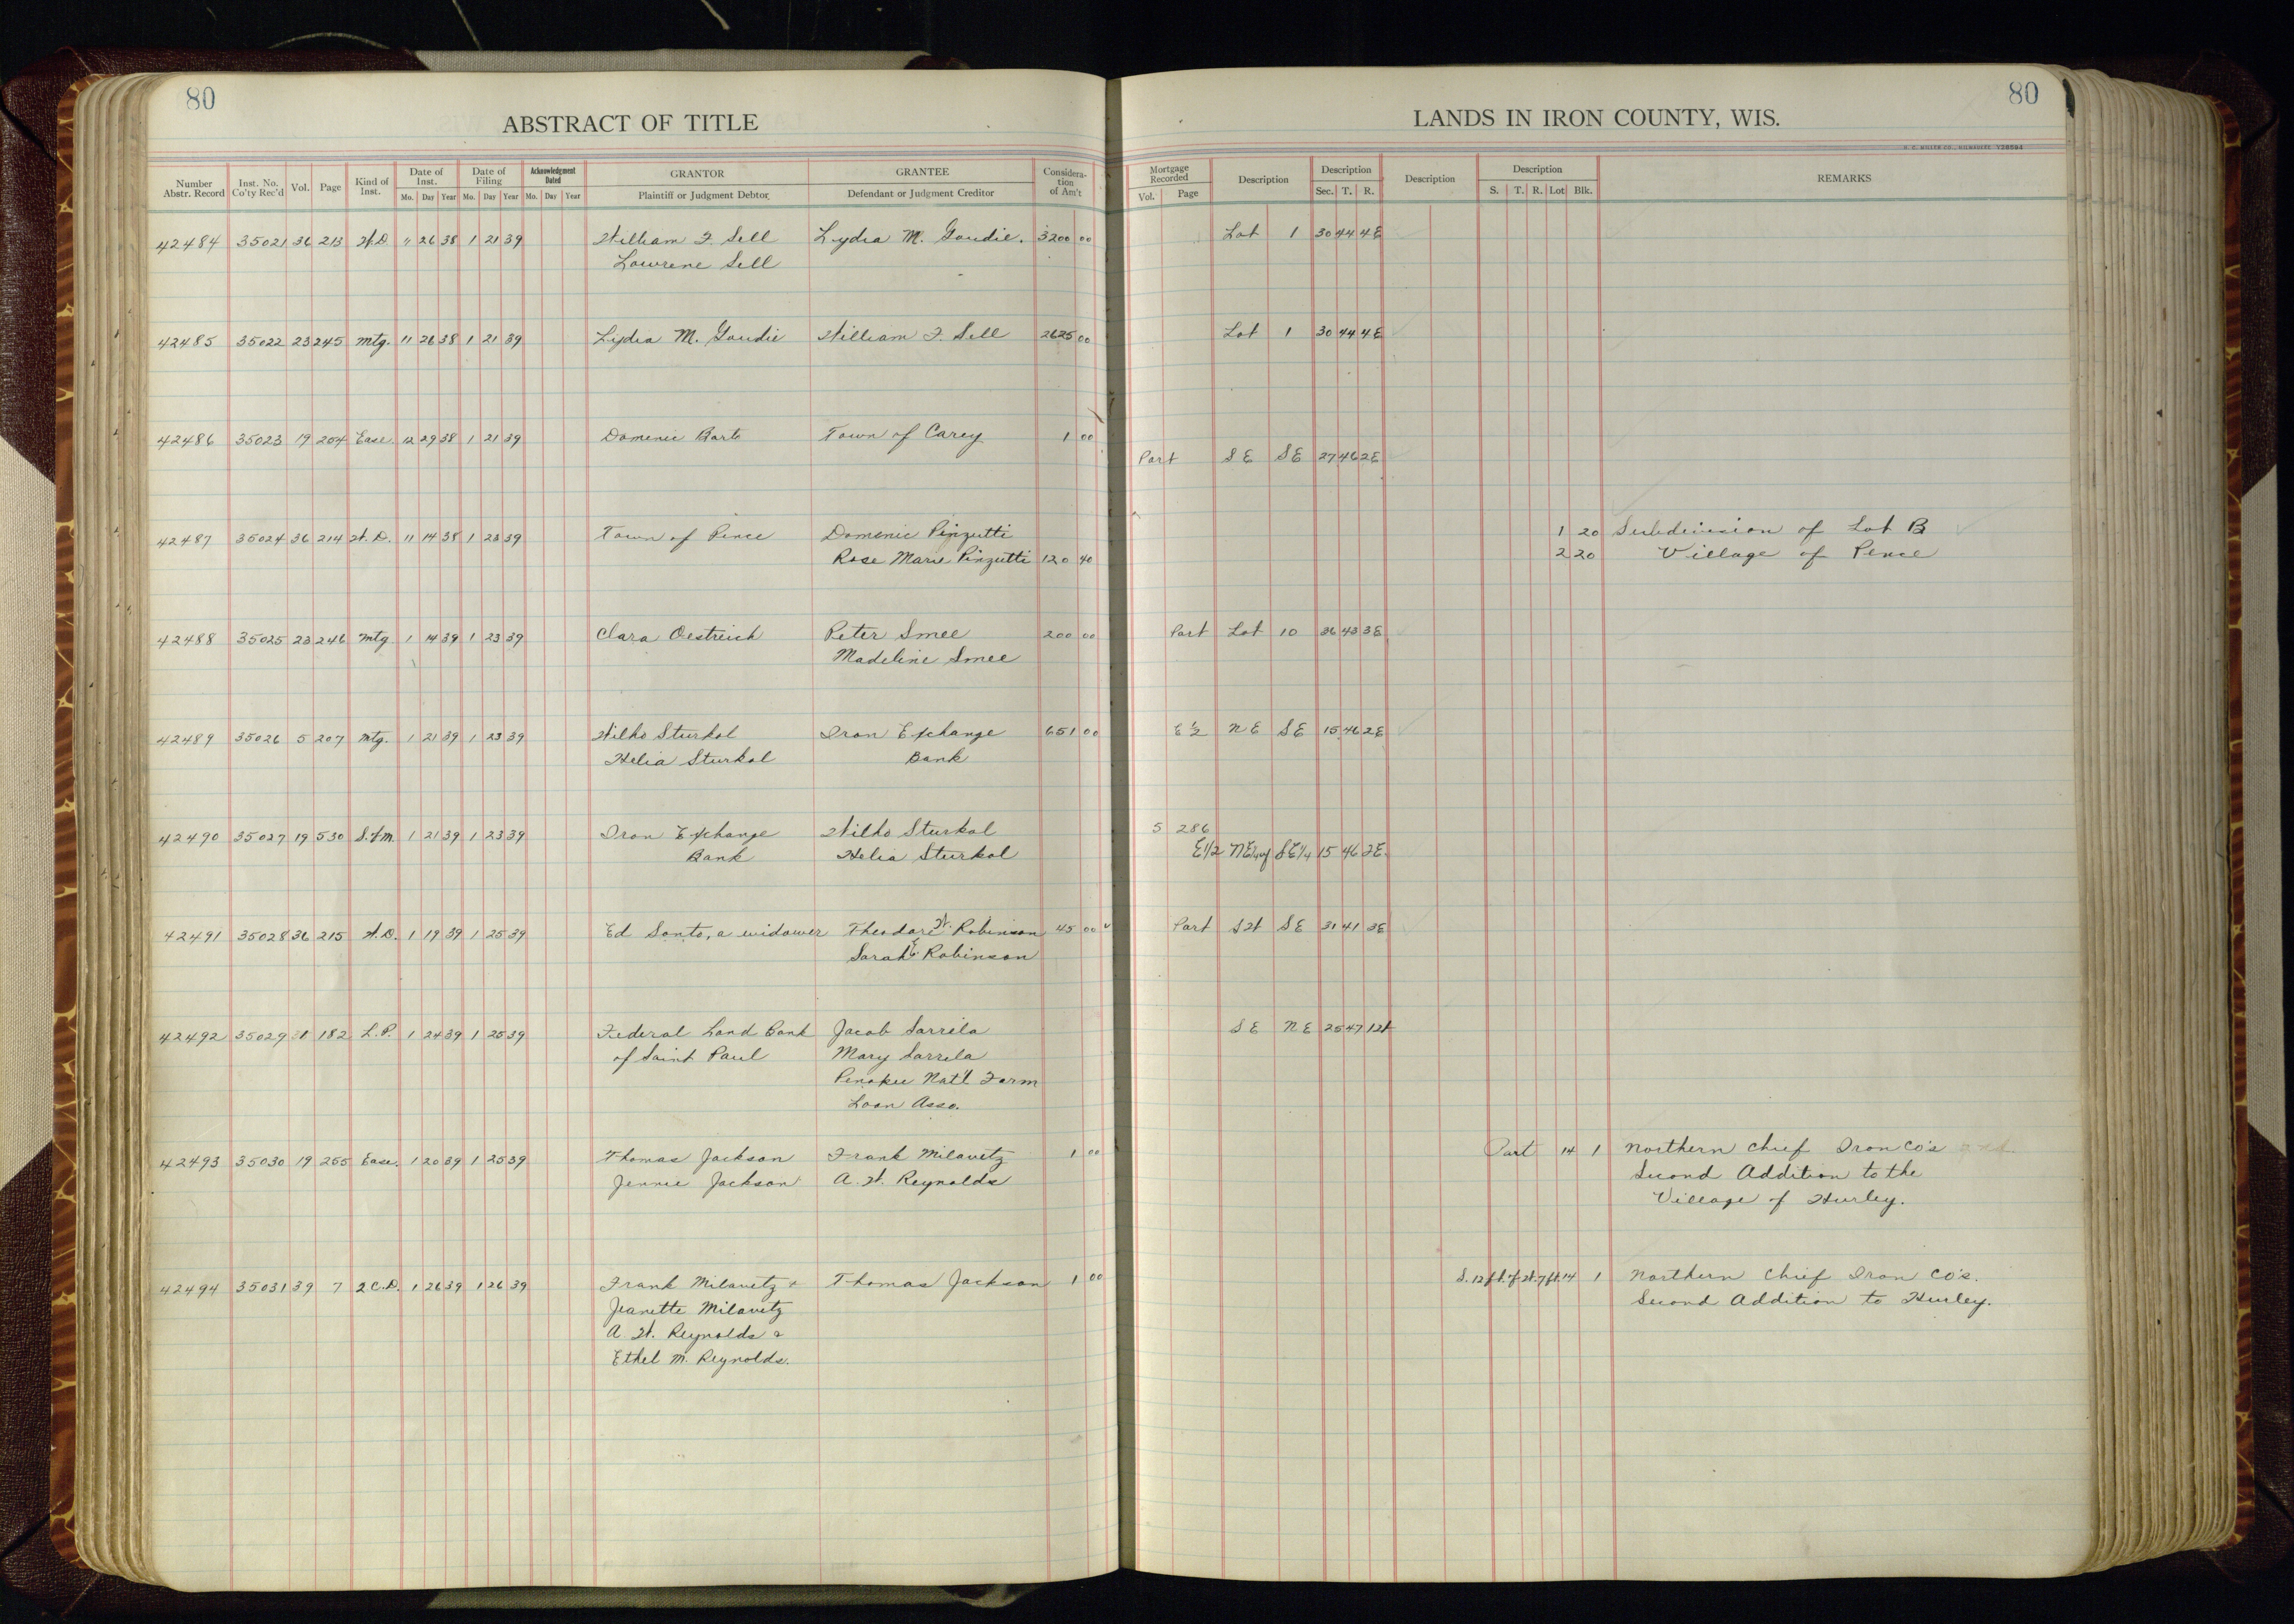 80
80
ABSTRACT OF TITLE
LANDS IN IRON COUNTY, WIS.
Number Abstr. Record Inst. No. Co'ty Rec'd Vol. Page Kind of Inst. Date of Inst. Mo. Day Year Date of Filing Mo. Day Year Acknowledgment Dated Mo. Day Year GRANTOR Plaintiff or Judgment Debtor GRANTEE Defendant or Judgment Creditor Consideration of Am't Mortgage Recorded Vol. Page Description Description Sec. T. R. Description Description S. T. R. Lot Blk. REMARKS
42484 35021 36 213 W.D. " 26 38 1 21 39 William F. Sell Lydia M. Goudie. 3200 00 Lot 1 30 44 4E
Lowrene Sell
42485 35022 23 245 Mtg. 11 26 38 1 21 39 Lydia M. Goudie William F. Sell 2625 00 Lot 1 30 44 4E
42486 35023 19 204 Ease. 12 29 38 1 21 39 Domenic Barto Town of Carey 1 00
Part SE SE 27 46 2E
42487 35024 36 214 W.D. 11 14 38 1 23 39 Town of Pence Domenic Pinzutti 1 20 Subdivision of Lot B
Rose Marie Pinzutti 120 40 2 20 Village of Pence
42488 35025 23 246 Mtg 1 14 39 1 23 39 Clara Oestreich Peter Smee 200 00 Part Lot 10 36 43 3E
Madeline Smee
42489 35026 5 207 Mtg. 1 21 39 1 23 39 Wilho Sturkol Iron Exchange 651 00 E ½ NE SE 15 46 2E
Helia Sturkol Bank
42490 35027 19 530 S.f.m. 1 21 39 1 23 39 Iron Exchange Wilho Sturkol 5 286
Bank Helia Sturkol E1/2 NE1/4 of SE1/4 15 46 2E.
42491 35028 36 215 W.D. 1 19 39 1 25 39 Ed Santo, a widower Theodore W. Robinson 45 00 Part SW SE 31 41 3E
Sarah E. Robinson
42492 35029 31 182 L.P. 1 24 39 1 25 39 Federal Land Bank Jacob Sarrela SE NE 25 47 1W
of Saint Paul Mary Sarrela
Penokee Nat'l Farm
Loan Asso.
42493 35030 19 255 Ease. 1 20 39 1 25 39 Thomas Jackson Frank Milavetz 1 00 Part 14 1 Northern Chief Iron Co's
Jennie Jackson A. W. Reynolds Second Addition to the
Village of Hurley.
42494 35031 39 7 2 C.D. 1 26 39 1 26 39 Frank Milavetz & Thomas Jackson 1 00 S.12 ft. of W. 7 ft. 14 1 Northern Chief Iron Co's.
Jeanette Milavetz Second Addition to Hurley.
A. W. Reynolds &
Ethel M. Reynolds.